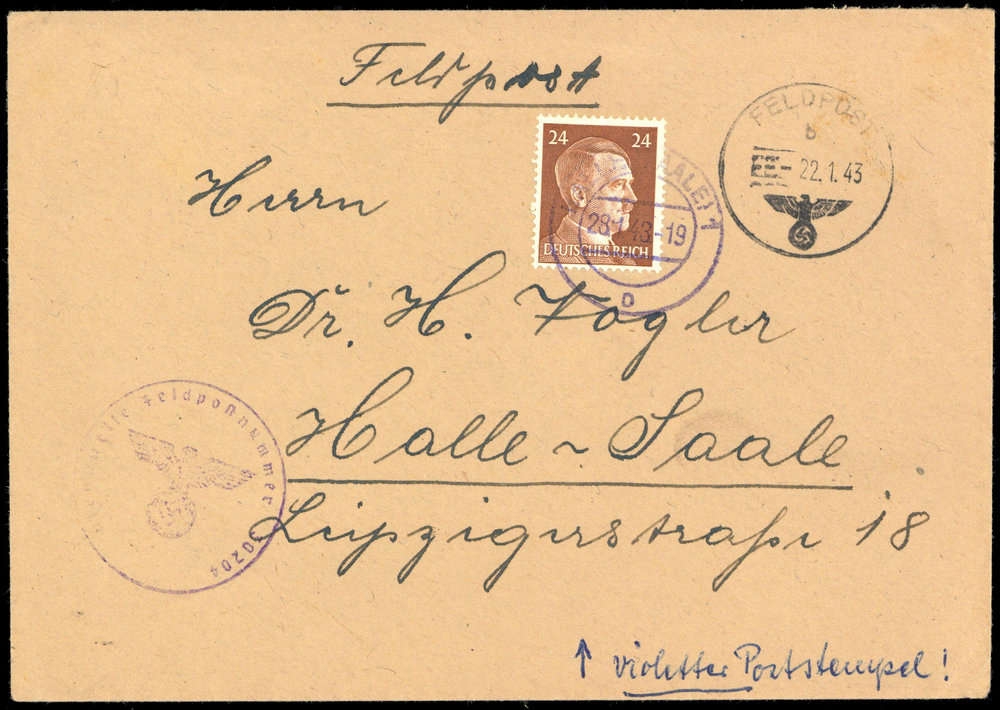 Feldpost
FELDPOST
b
22.1.43
24 24
DEUTSCHES REICH
(SAALE) 1
28.1.43-19
D
Herrn
Dr. H. Vogler
Halle ~ Saale
Leipzigerstraße 18
Feldpostnummer 30204
↑ violetter Poststempel!